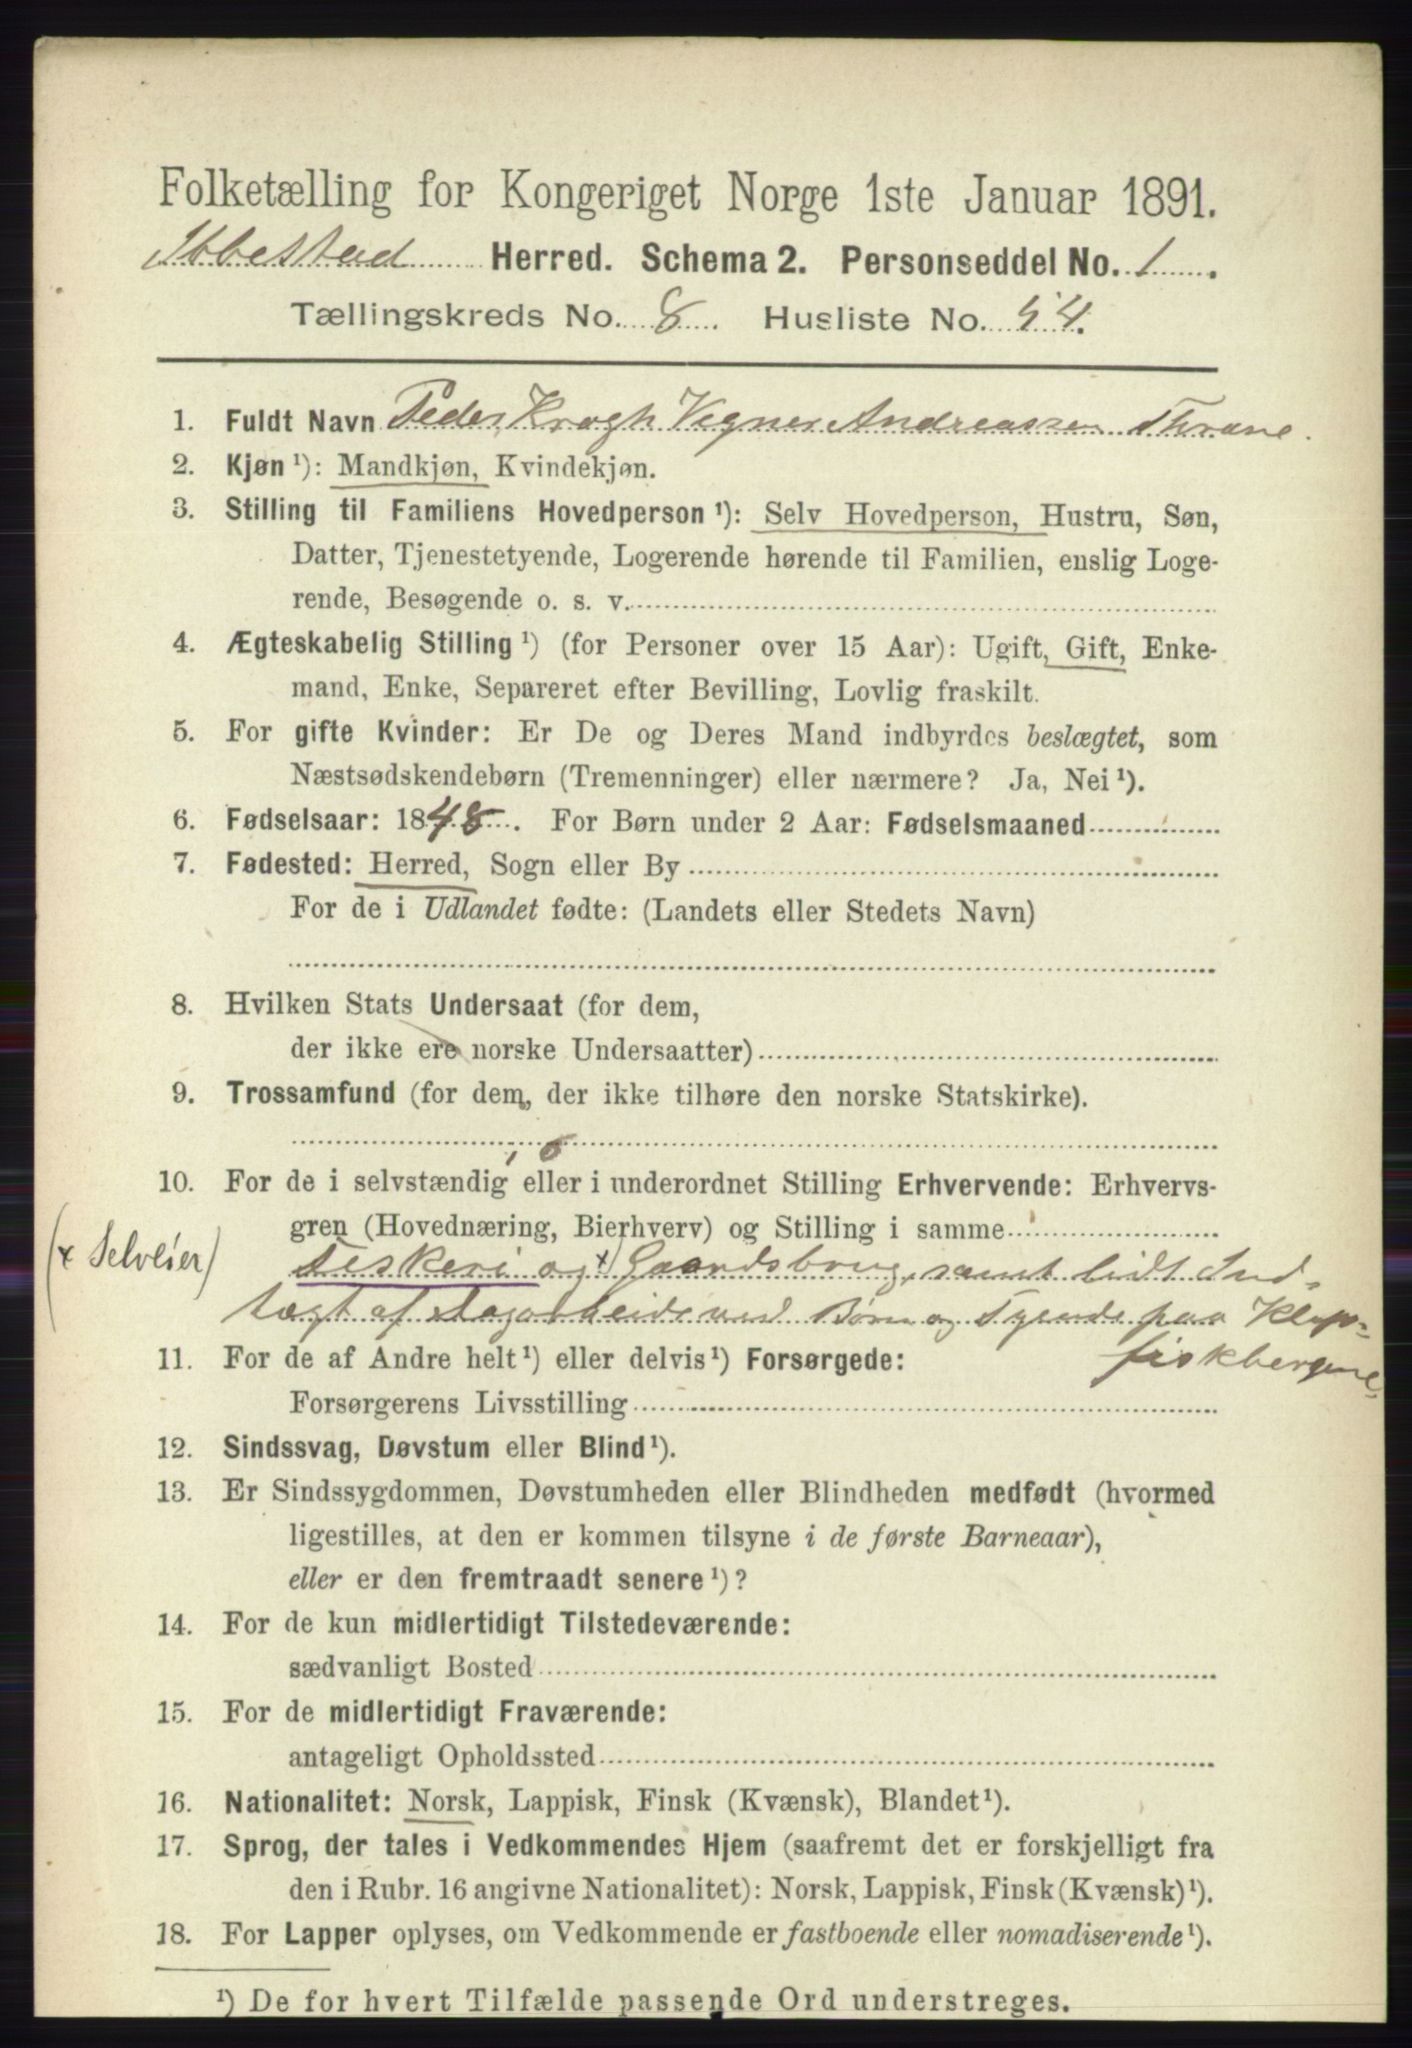 Folketælling for Kongeriget Norge 1ste Januar 1891.
Ibbestad Herred. Schema 2. Personseddel No. 1.
Tællingskreds No. 8. Husliste No. 54.
1. Fuldt Navn Peder Krogh Vegner Andreassen Thrane.
2. Kjøn ¹): Mandkjøn, Kvindekjøn.
3. Stilling til Familiens Hovedperson ¹): Selv Hovedperson, Hustru, Søn,
Datter, Tjenestetyende, Logerende hørende til Familien, enslig Loge-
rende, Besøgende o. s. v.
4. Ægteskabelig Stilling ¹) (for Personer over 15 Aar): Ugift, Gift, Enke-
mand, Enke, Separeret efter Bevilling, Lovlig fraskilt.
5. For gifte Kvinder: Er De og Deres Mand indbyrdes beslægtet, som
Næstsødskendebørn (Tremenninger) eller nærmere? Ja, Nei ¹).
6. Fødselsaar: 1848. For Børn under 2 Aar: Fødselsmaaned
7. Fødested: Herred, Sogn eller By
For de i Udlandet fødte: (Landets eller Stedets Navn)
8. Hvilken Stats Undersaat (for dem,
der ikke ere norske Undersaatter)
9. Trossamfund (for dem, der ikke tilhøre den norske Statskirke).
10. For de i selvstændig eller i underordnet Stilling Erhvervende: Erhvervs-
gren (Hovednæring, Bierhverv) og Stilling i samme
(x Selveier)
Fiskeri og x) Gaardsbrug, samt lidt Ind-
tægt af Dagarbeide med Børn og Tyende paa Klip-
fiskbergene
11. For de af Andre helt ¹) eller delvis ¹) Forsørgede:
Forsørgerens Livsstilling
12. Sindssvag, Døvstum eller Blind ¹).
13. Er Sindssygdommen, Døvstumheden eller Blindheden medfødt (hvormed
ligestilles, at den er kommen tilsyne i de første Barneaar),
eller er den fremtraadt senere ¹)?
14. For de kun midlertidigt Tilstedeværende:
sædvanligt Bosted
15. For de midlertidigt Fraværende:
antageligt Opholdssted
16. Nationalitet: Norsk, Lappisk, Finsk (Kvænsk), Blandet ¹).
17. Sprog, der tales i Vedkommendes Hjem (saafremt det er forskjelligt fra
den i Rubr. 16 angivne Nationalitet): Norsk, Lappisk, Finsk (Kvænsk) ¹).
18. For Lapper oplyses, om Vedkommende er fastboende eller nomadiserende ¹).
¹) De for hvert Tilfælde passende Ord understreges.